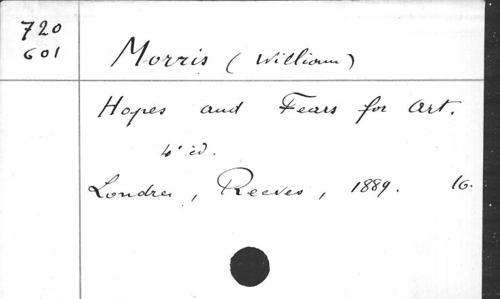 720
601
Morris (William)
Hopes and Fears for Art.
4e éd.
Londres, Reeves, 1889. 16.